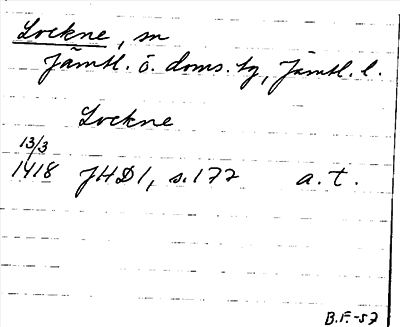 Lockne, sn
Jämtl. ö. doms. tg, Jämtl. l.
Lockne
13/3
1418 JHD1, s.172 a.t.
B.F.-57